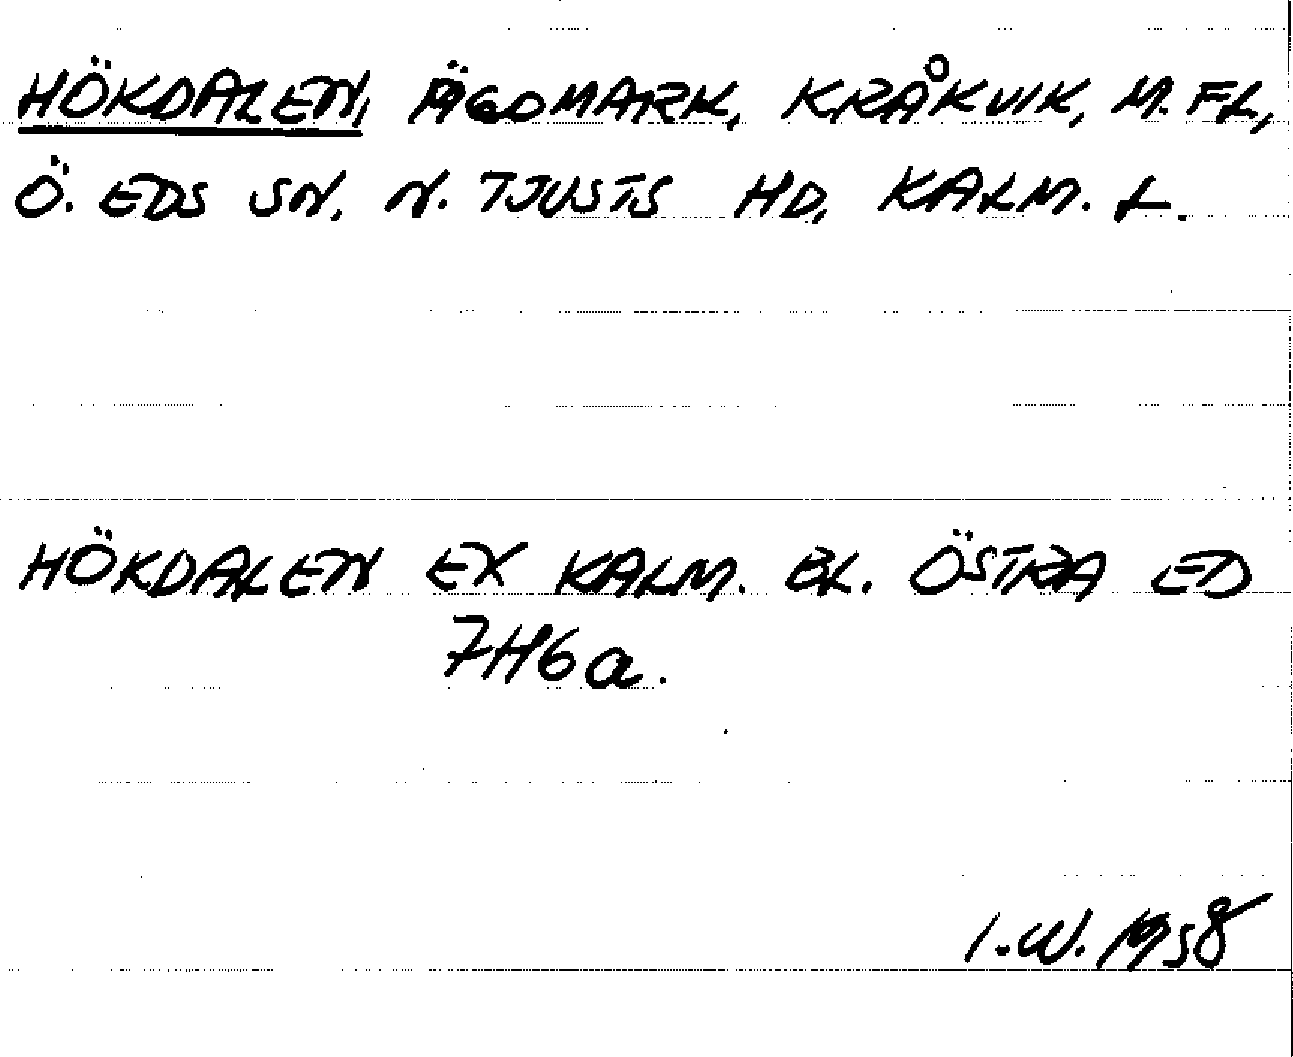 HÖKDALEN, ÄGOMARK, KRÅKVIK, M. FL,
Ö. EDS SN, N. TJUSTS HD, KALM. L.
HÖKDALEN EK KALM. BL. ÖSTRA ED
7H6a.
I.W. 1958